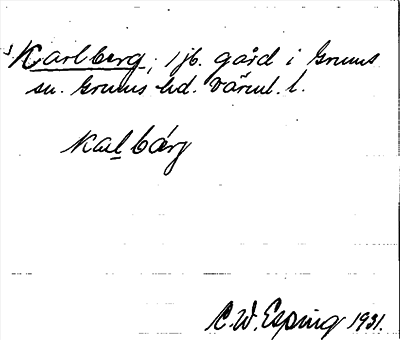 Karlberg, jb. gård i Grums
sn. Grums hd. Värml. l.
Kal bárg
C.W. Esping 1931.